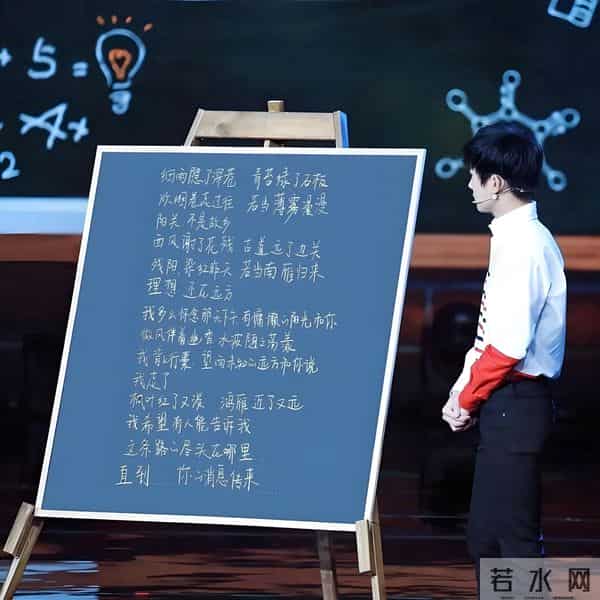 +5=
2
细雨隐了深巷 青苔绿了石板
炊烟是走过往 若当薄雾漫漫
阳关 不是故乡
西风谢了花残 古道远了边关
残阳 染红昨天 若当南雁归来
理想 还在远方
我多么怀念那天下午有慵懒的阳光和你
微风伴着 水波随之荡漾
我背上行囊 望向未知的远方和你说
我走了
枫叶红了又落 鸿雁近了又远
我希望有人能告诉我
这条路的尽头在哪里
直到 你的消息传来
若水网